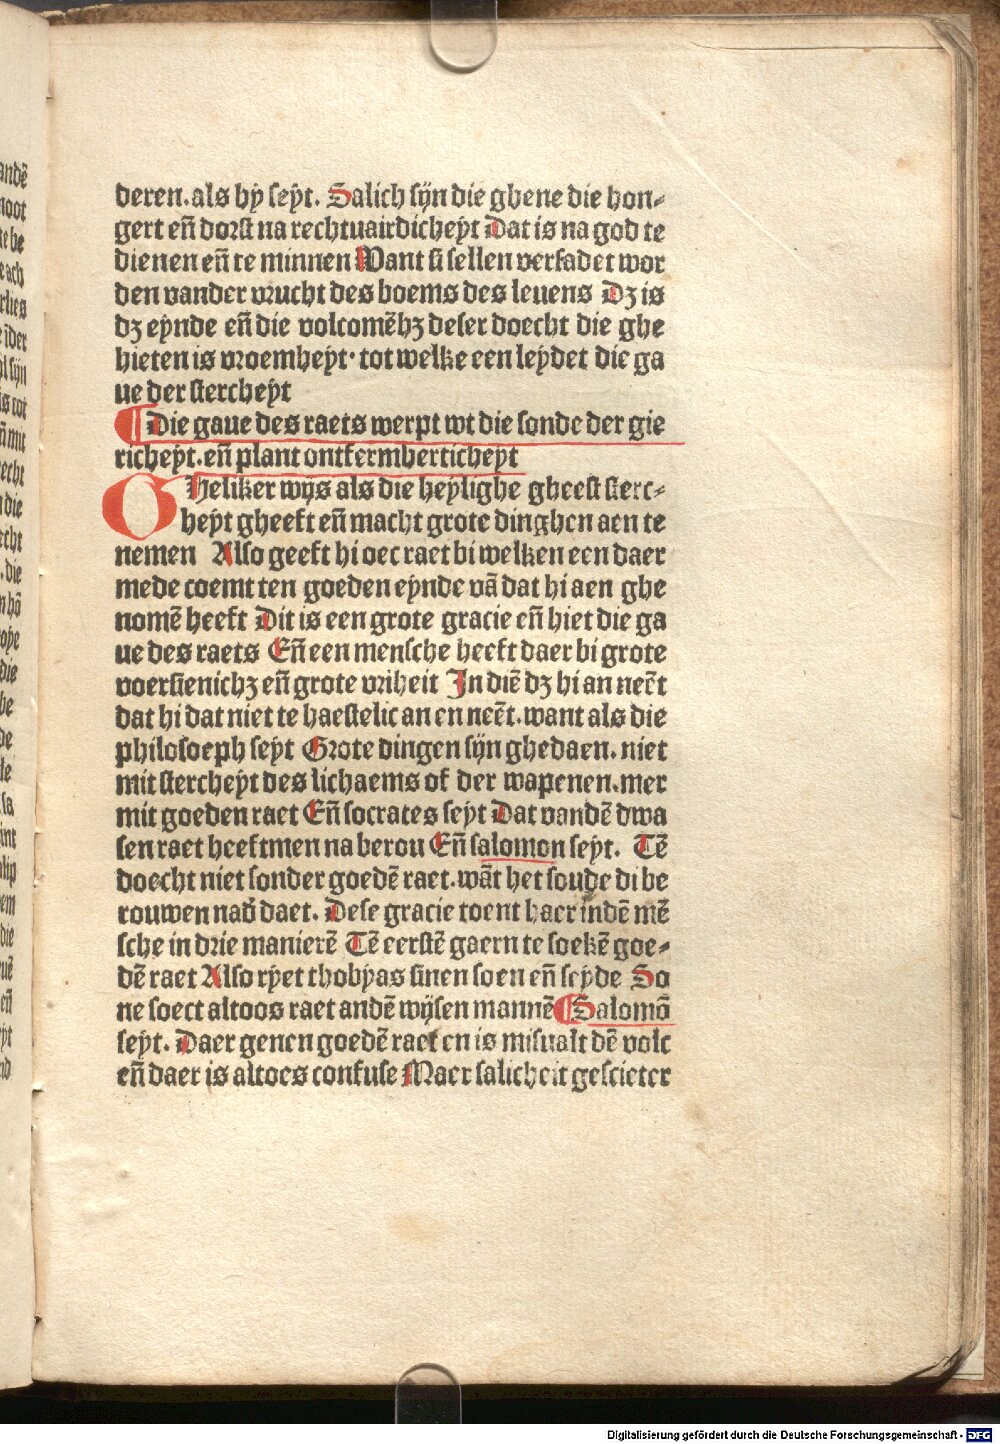 deren. als hy seyt. Salich sijn die ghene die hon-
gert en̄ dorst na rechtuairdicheyt Dat is na god te
dienen en̄ te minnen Want si sellen versadet wor
den vander vrucht des boems des leuens Dz is
dz eynde en̄ die volcomēhz deser doecht die ghe
hieten is vroemheyt· tot welke een leydet die ga
ue der stercheyt
¶ Die gaue des raets werpt wt die sonde der gie
richeyt. en̄ plant ontfermherticheyt
Gheliker wys als die heylighe gheest sterc-
heyt gheeft en̄ macht grote dinghen aen te
nemen Also geeft hi oec raet bi welken een daer
mede coemt ten goeden eynde vā dat hi aen ghe
nomē heeft Dit is een grote gracie en̄ hiet die ga
ue des raets En̄ een mensche heeft daer bi grote
voersienichz en̄ grote vriheit In diē dz hi an neēt
dat hi dat niet te haestelic an en neēt. want als die
philosoeph seyt Grote dingen sijn ghedaen. niet
mit stercheyt des lichaems of der wapenen. mer
mit goeden raet En̄ socrates seyt Dat vandē dwa
sen raet heeftmen na berou En̄ salomon seyt. Tē
doecht niet sonder goedē raet. wāt het soude di be
rouwen nad̄ daet. Dese gracie toent haer indē mē
sche in drie manierē Tē eerstē gaern te soekē goe-
dē raet Also ryet thobyas sinen soen en̄ seyde So
ne soect altoos raet andē wijsen mannē ¶ Salomō
seyt. Daer genen goedē raet en is misualt dē volc
en̄ daer is altoes confuse Maer salicheit gescieter
andē
noot
te be
rlies
die
be
die
en̄
Digitalisierung gefördert durch die Deutsche Forschungsgemeinschaft - DFG